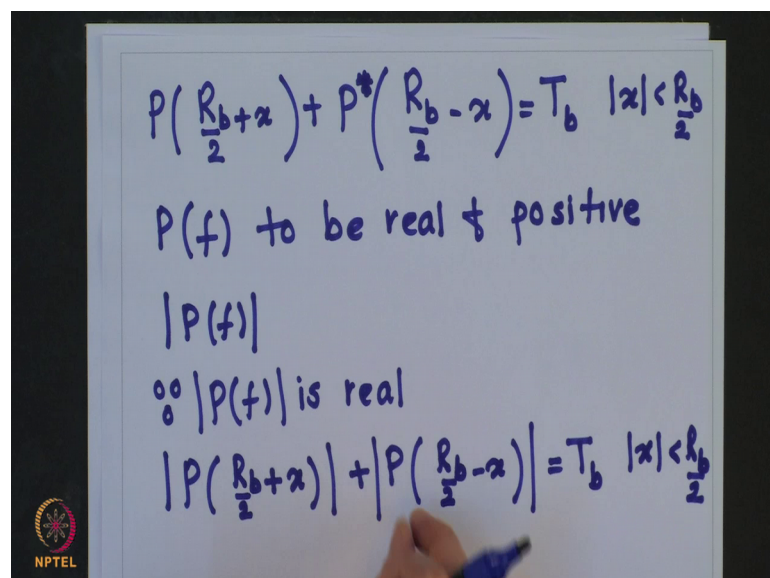 P(R_b/2 + x) + P*(R_b/2 - x) = T_b |x| < R_b/2
P(f) to be real & positive
|P(f)|
∵ |P(f)| is real
|P(R_b/2 + x)| + |P(R_b/2 - x)| = T_b |x| < R_b/2
NPTEL